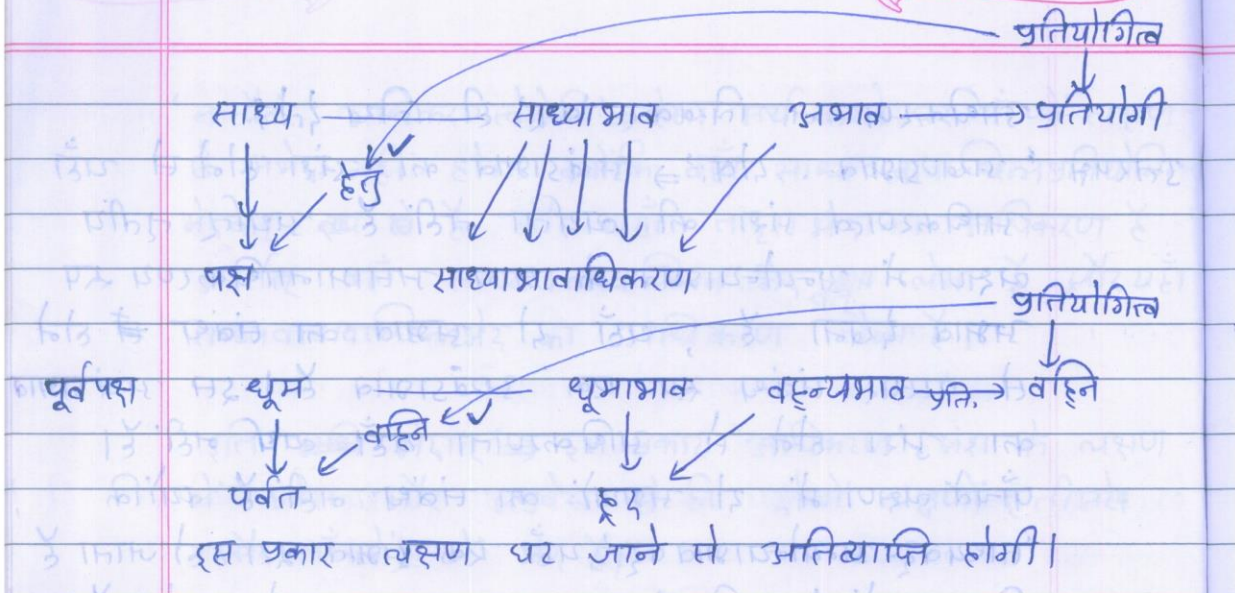 प्रतियोगित्व
साध्य साध्याभाव अभाव → प्रतियोगी
हेतु
पक्ष साध्याभावाधिकरण
प्रतियोगित्व
पूर्वपक्ष धूम धूमाभाव वह्न्यभाव प्रति. → वह्नि
वह्नि
पर्वत ह्रद
इस प्रकार लक्षण घट जाने से अतिव्याप्ति होगी।